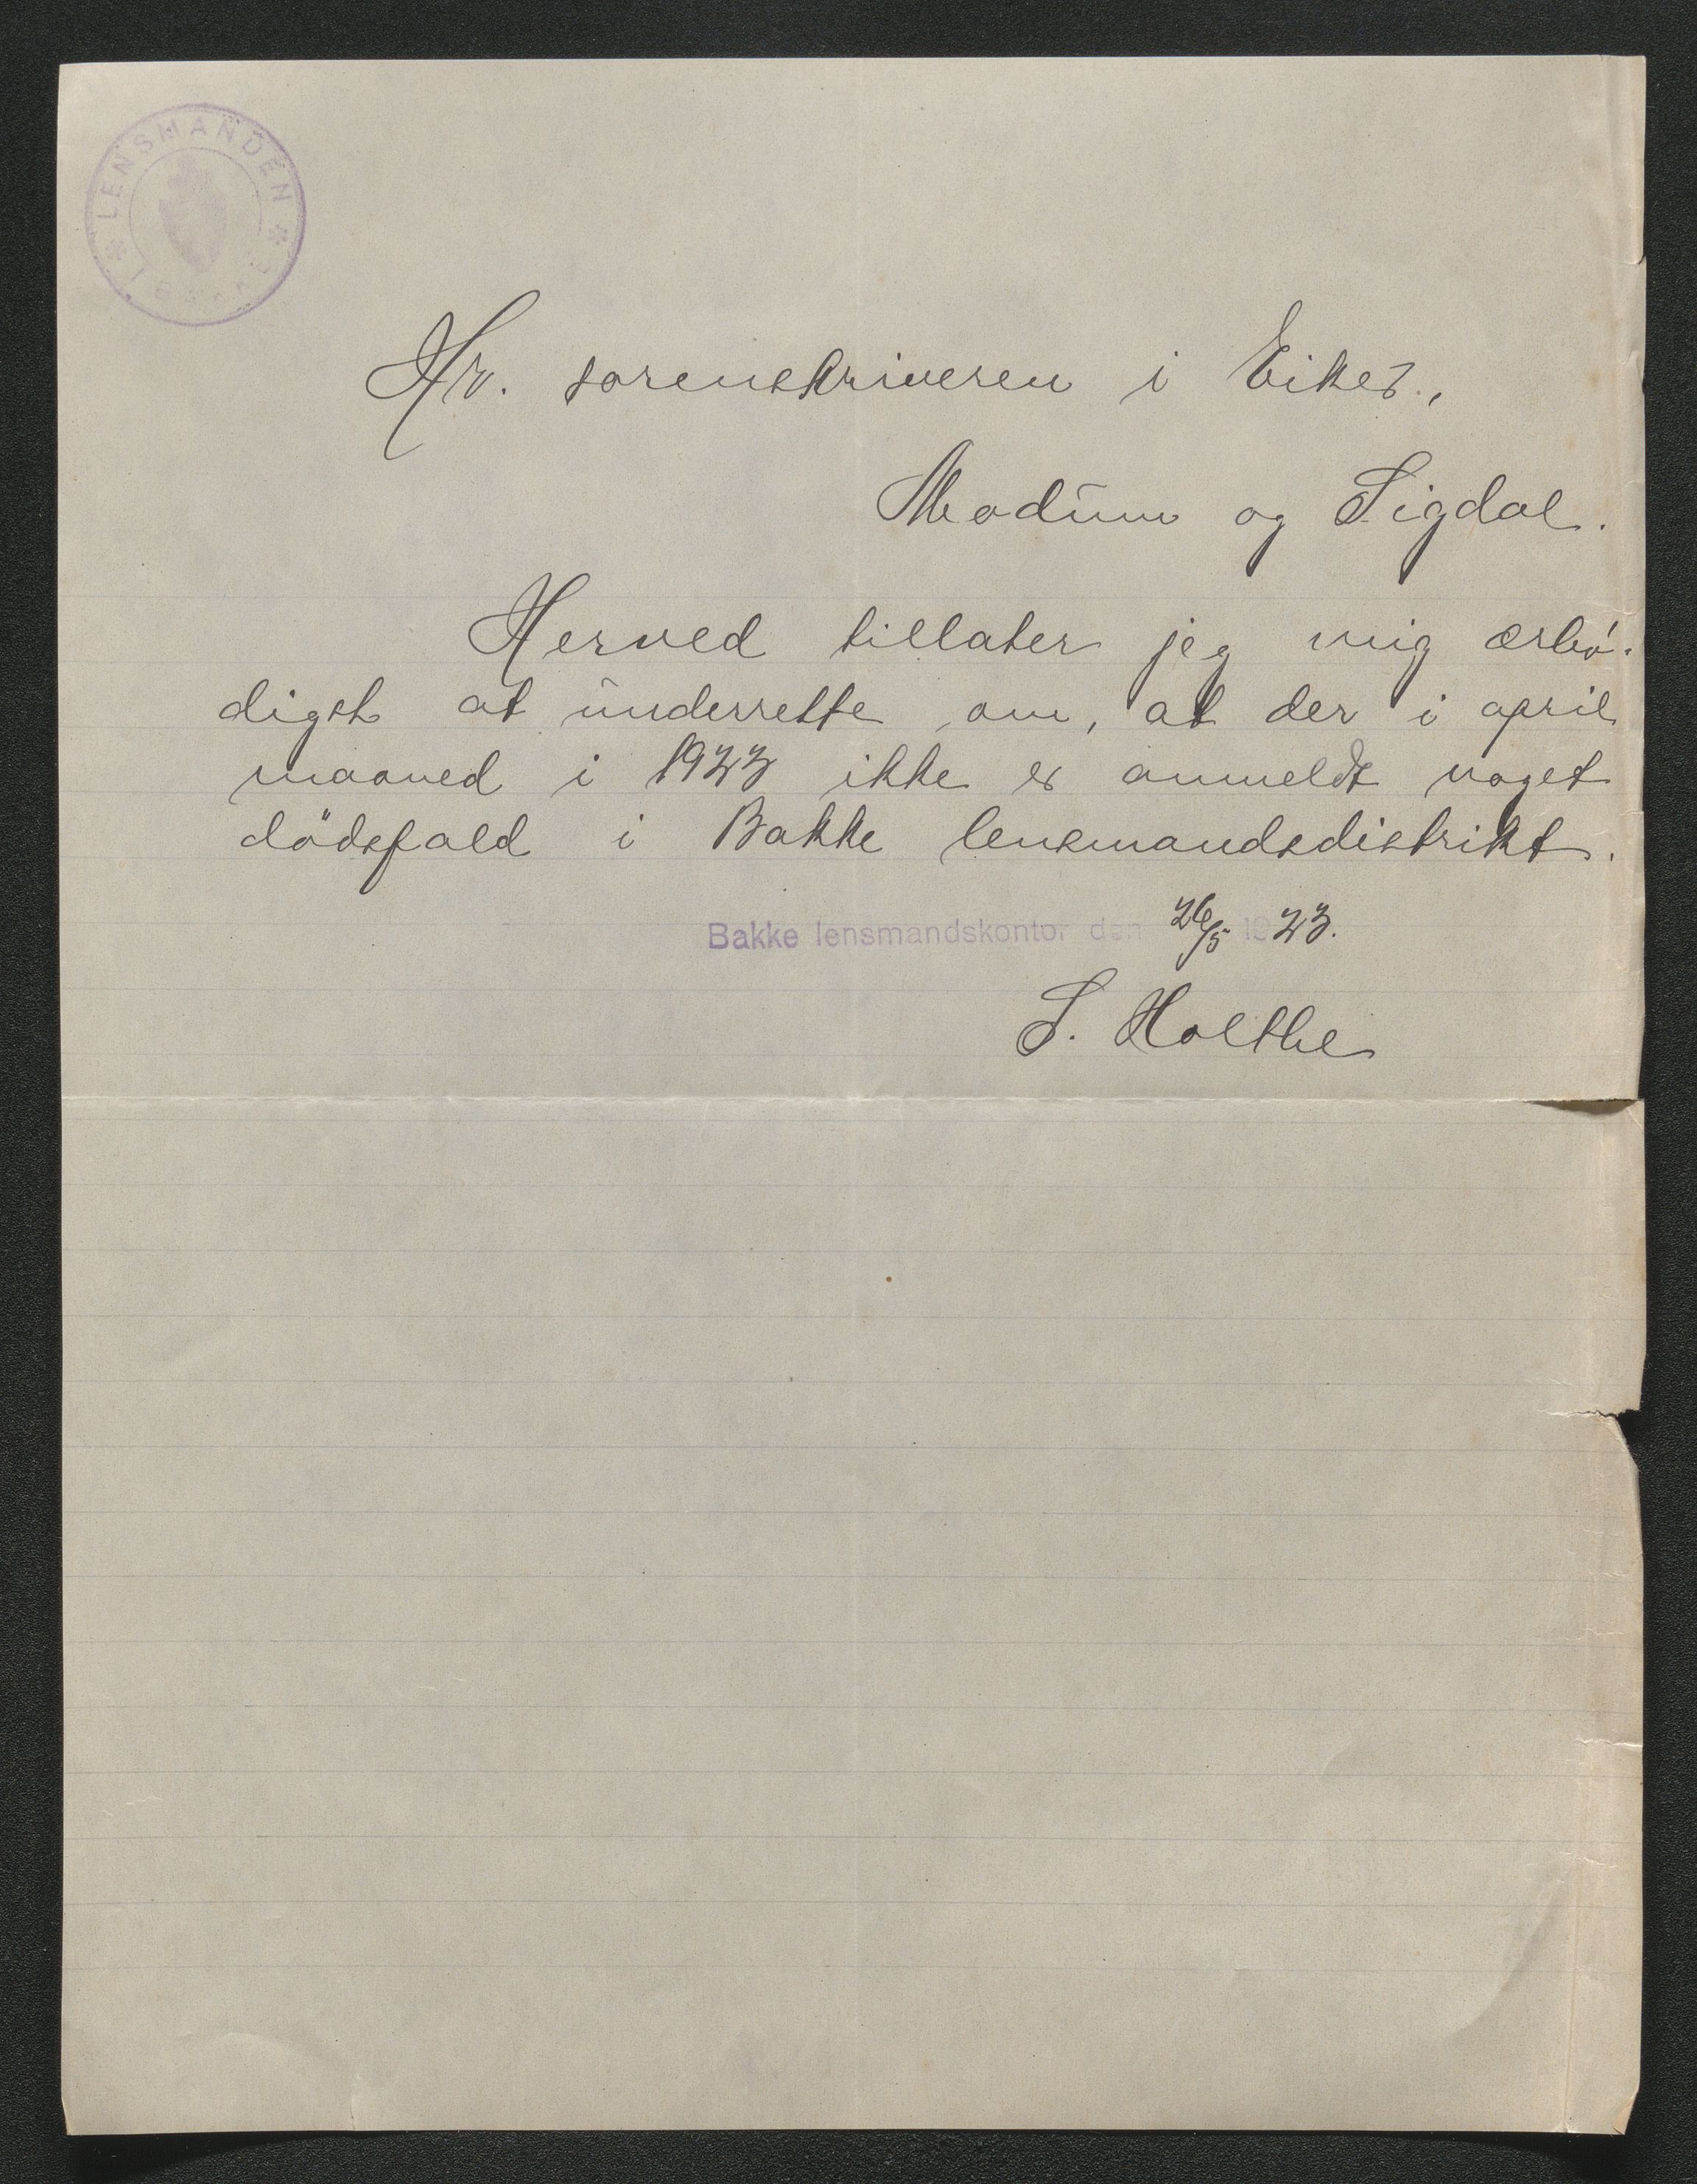 LENSMANDEN I BAKKE
Hr. sorenskriveren i Eiker,
Modum og Sigdal.
Herved tillater jeg mig ærbö-
digst at underrette om, at der i april
maaned i 1923 ikke er anmeldt noget
dödsfald i Bakke lensmandsdistrikt.
Bakke lensmandskontor den 26/5 1923.
S. Holthe